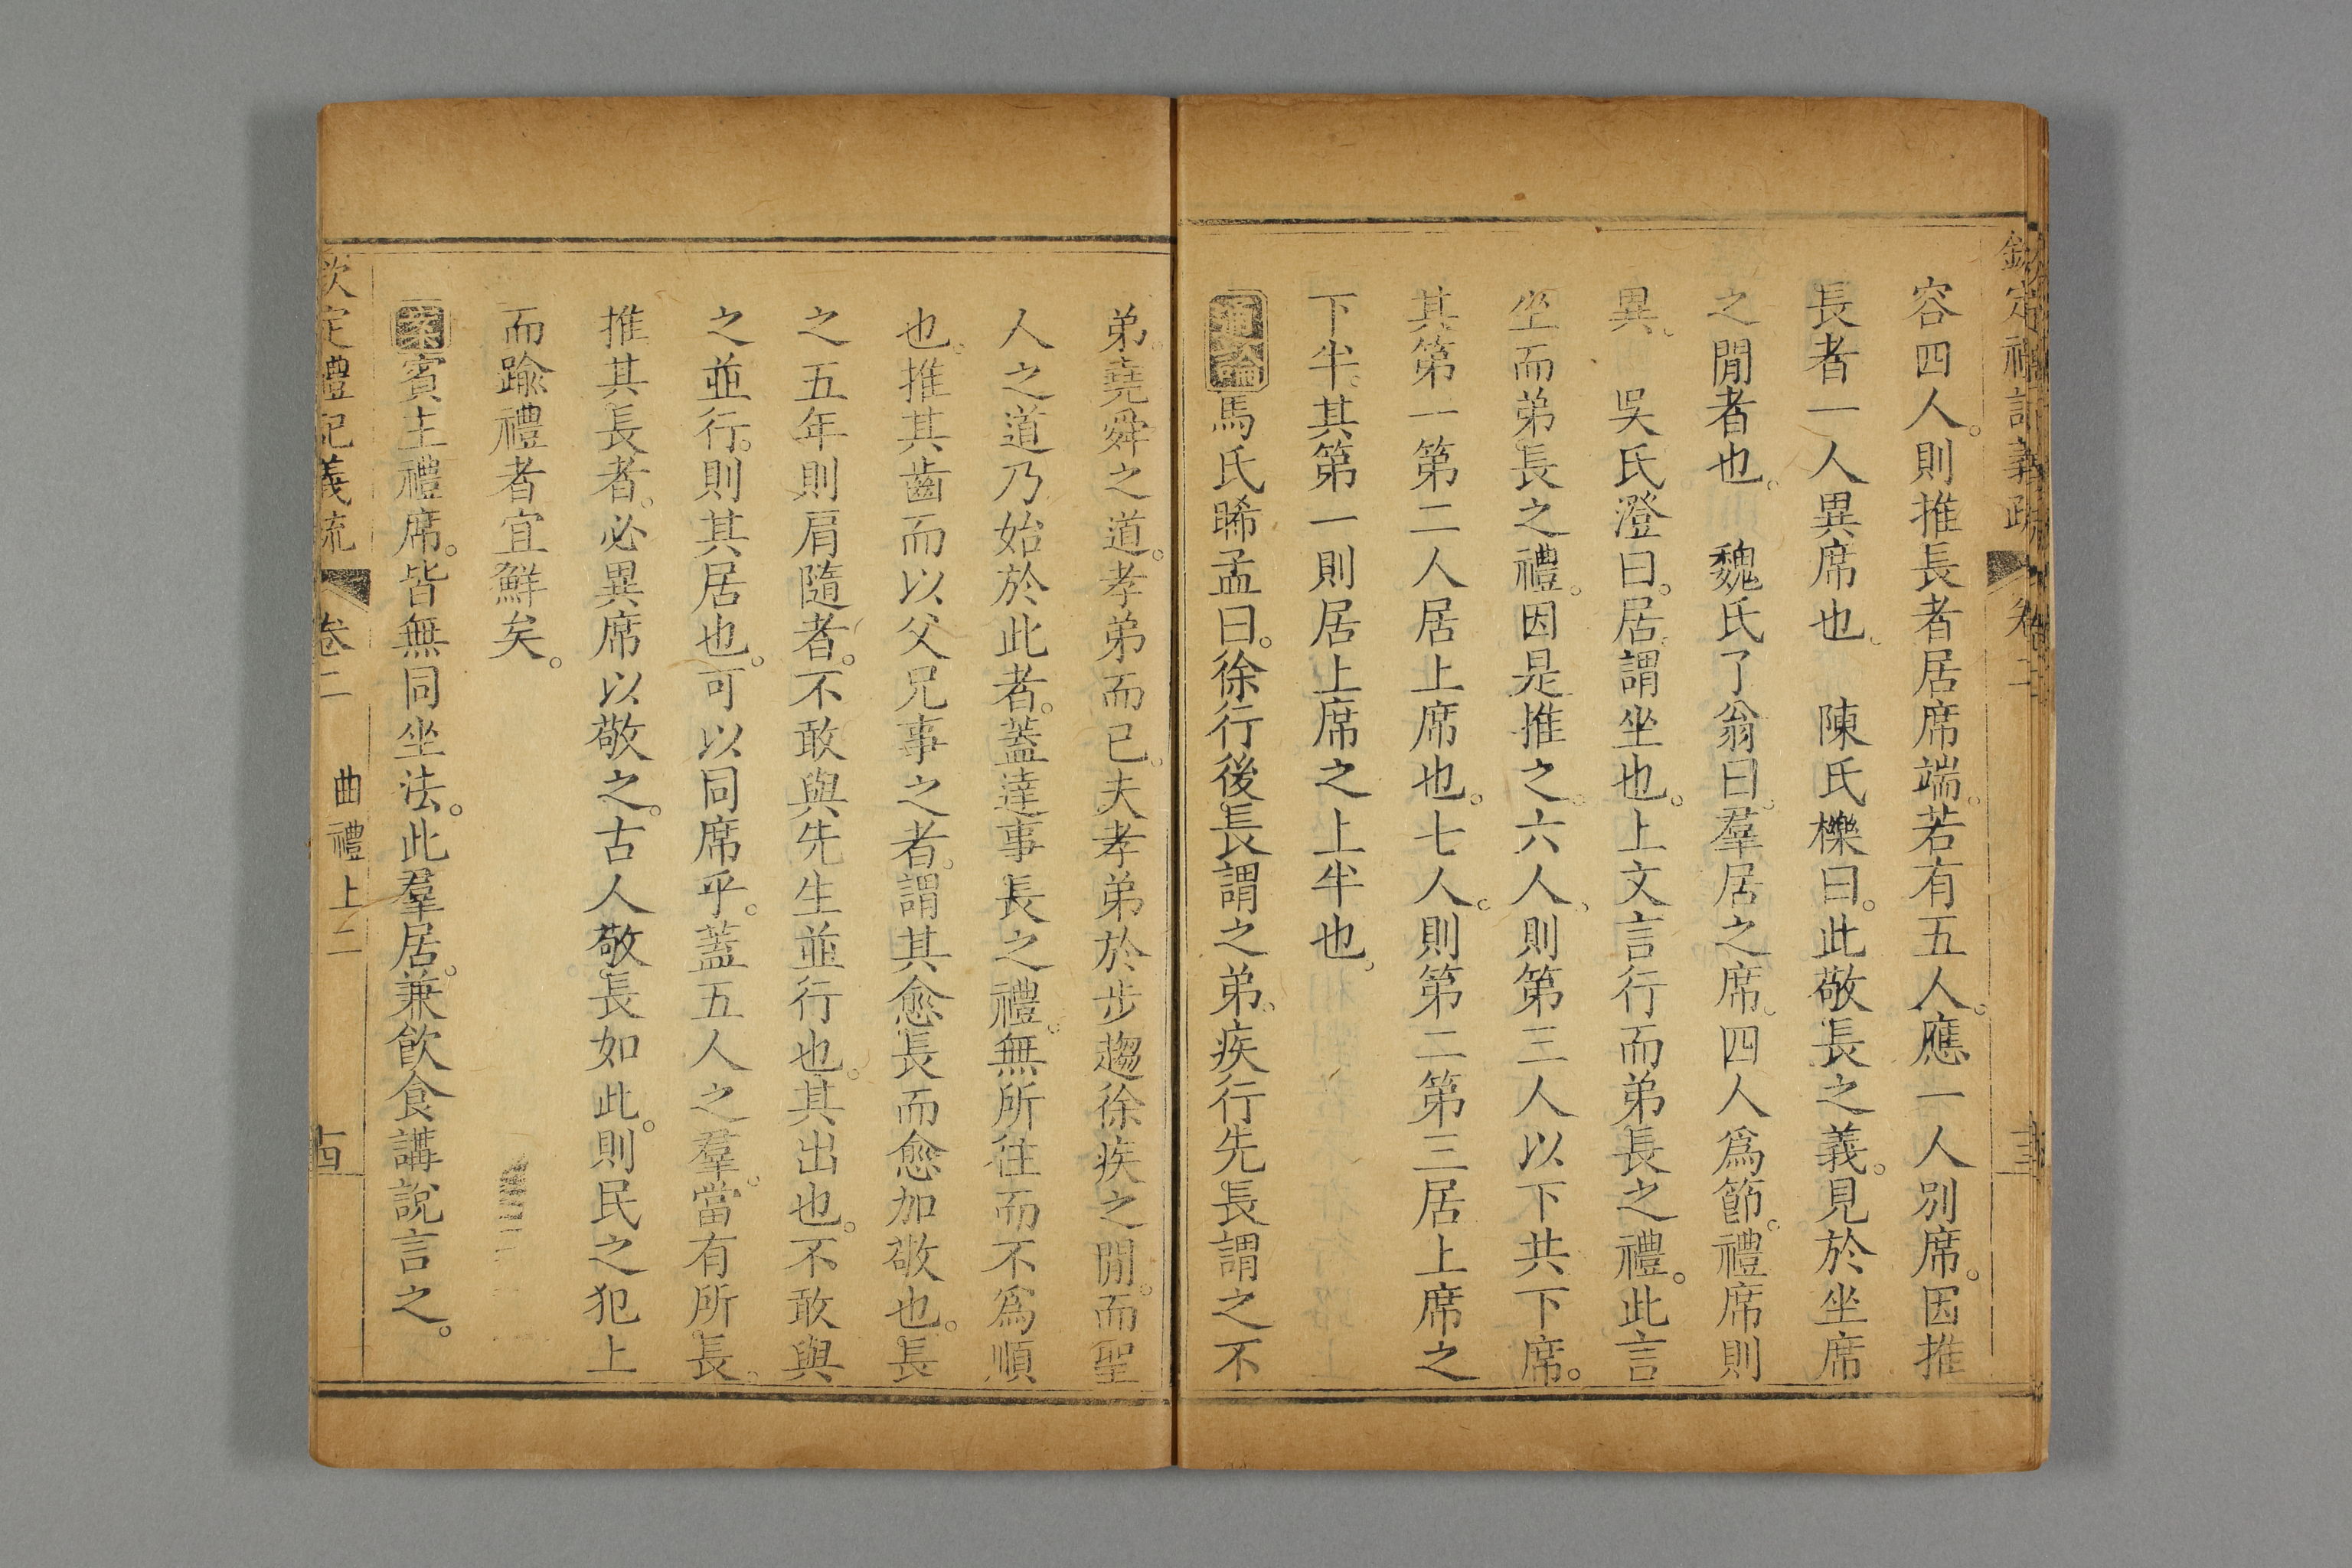 欽定禮記義疏 卷二
容四人。則推長者居席端。若有五人。應一人別席。因推
長者一人異席也 陳氏櫟曰。此敬長之義。見於坐席
之閒者也。 魏氏了翁曰。羣居之席。四人爲節。禮席則
異。 吳氏澄曰。居謂坐也。上文言行而弟長之禮。此言
坐而弟長之禮。因是推之。六人則第三人以下共下席。
其第一第二人居上席也。七人。則第二第三居上席之
下半。其第一則居上席之上半也。
通論馬氏晞孟曰。徐行後長謂之弟。疾行先長謂之不
弟。堯舜之道。孝弟而已。夫孝弟於步趨徐疾之閒。而聖
人之道乃始於此者。蓋達事長之禮。無所往而不爲順
也。推其齒而以父兄事之者。謂其愈長而愈加敬也。長
之五年則肩隨者。不敢與先生並行也。其出也。不敢與
之並行。則其居也。可以同席乎。蓋五人之羣。當有所長。
推其長者。必異席以敬之。古人敬長如此。則民之犯上
而踰禮者宜鮮矣。
案賓主禮席。皆無同坐法。此羣居。兼飲食講說言之。
欽定禮記義疏 卷二 曲禮上二 十四